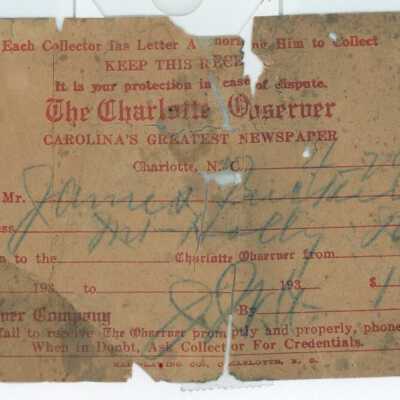 Each Collector has Letter A horizing Him to Collect
KEEP THIS RECE
It is your protection in case of dispute.
The Charlotte Observer
CAROLINA'S GREATEST NEWSPAPER
Charlotte, N. C.
Mr. James
ess Mt Holly
on to the Charlotte Observer from
193 to 193 $1
By
ver Company
fail to receive The Observer promptly and properly, phone
When in Doubt, Ask Collector For Credentials.
CO., CHARLOTTE, N. C.